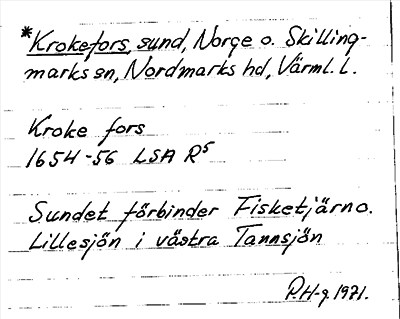 *Krokefors, sund, Norge o. Skilling-
marks sn, Nordmarks hd, Värml. l.
Kroke fors
1654-56 LSA R5
Sundet förbinder Fisketjärn o.
Lillesjön i västra Tannsjön
P.H-g 1971.